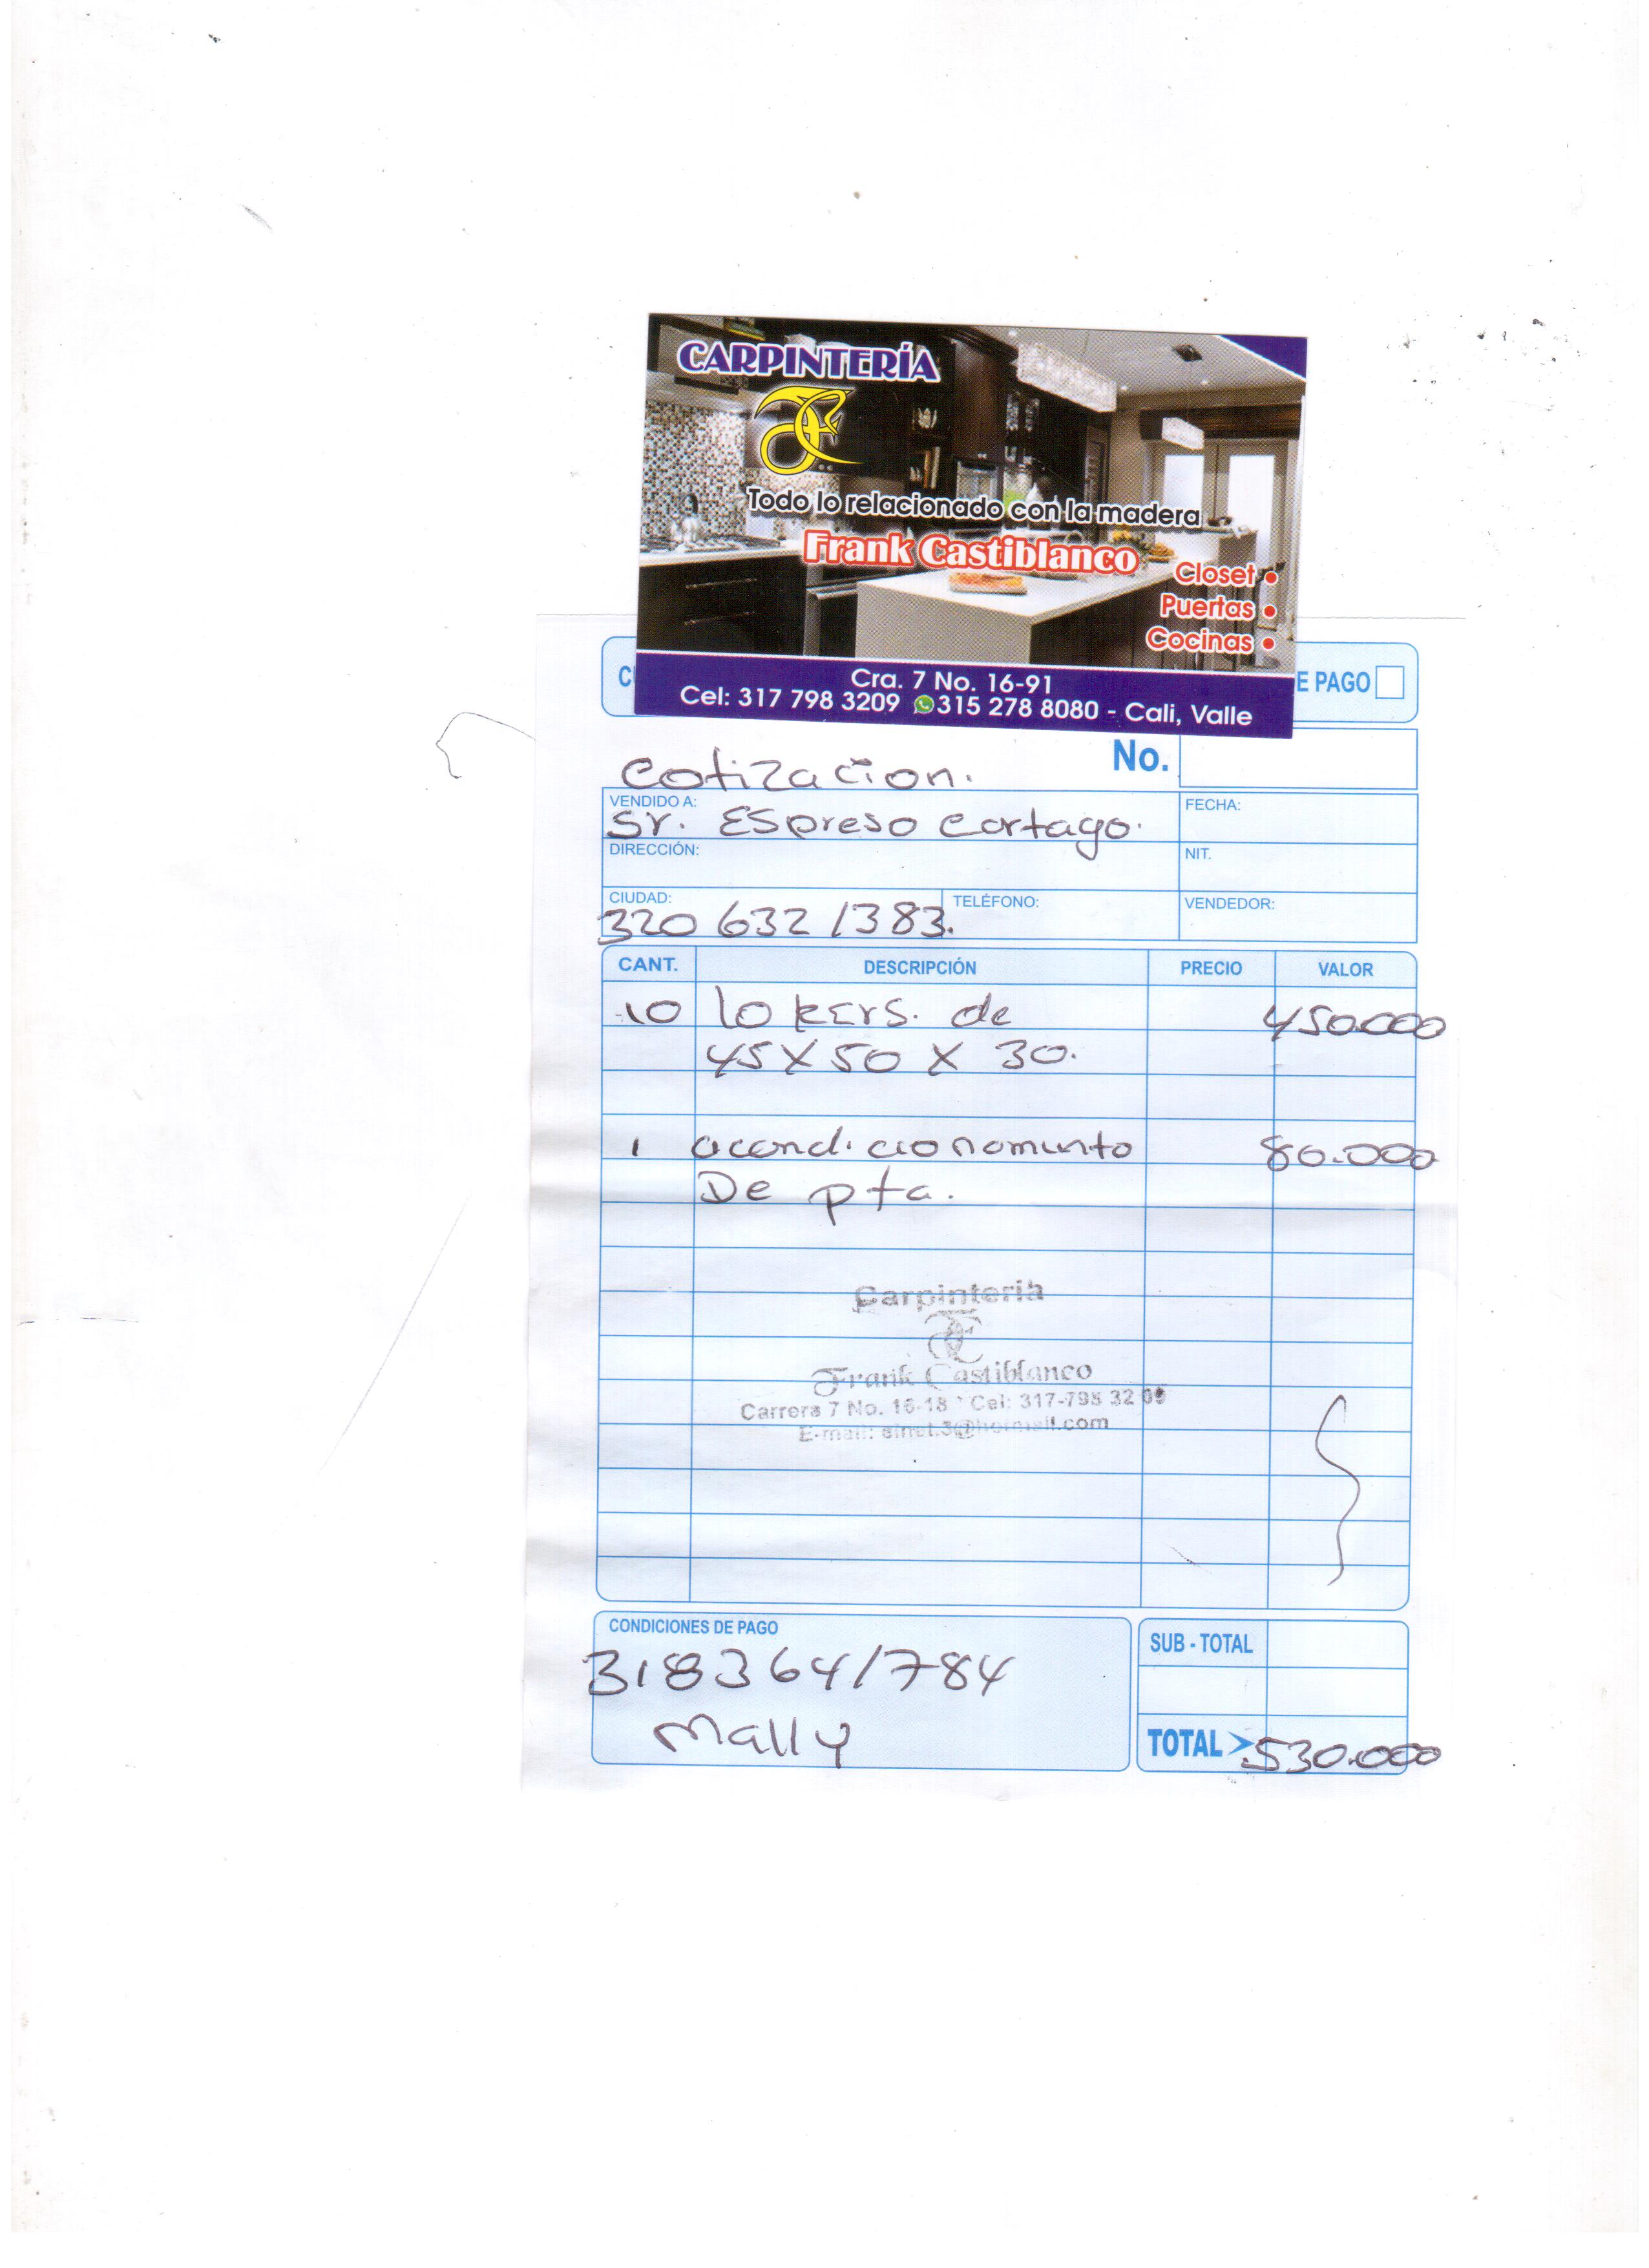 CARPINTERÍA
Todo lo relacionado con la madera
Frank Castiblanco
Closet •
Puertas •
Cocinas •
Cra. 7 No. 16-91
Cel: 317 798 3209 315 278 8080 - Cali, Valle
E PAGO
No.
Cotizacion.
VENDIDO A:
Sr. ESpreso Cartago.
FECHA:
DIRECCIÓN:
NIT.
CIUDAD:
320 632 1383.
TELÉFONO:
VENDEDOR:
CANT. DESCRIPCIÓN PRECIO VALOR
10 lokers. de 450.000
45 X 50 X 30.
1 acondicionamiento 80.000
De pta.
Carpinteria
Frank Castiblanco
Carrera 7 No. 16-18 Cel: 317-798 32 09
E-mail:
CONDICIONES DE PAGO
318 364 1784
Mally
SUB - TOTAL
TOTAL 530.000